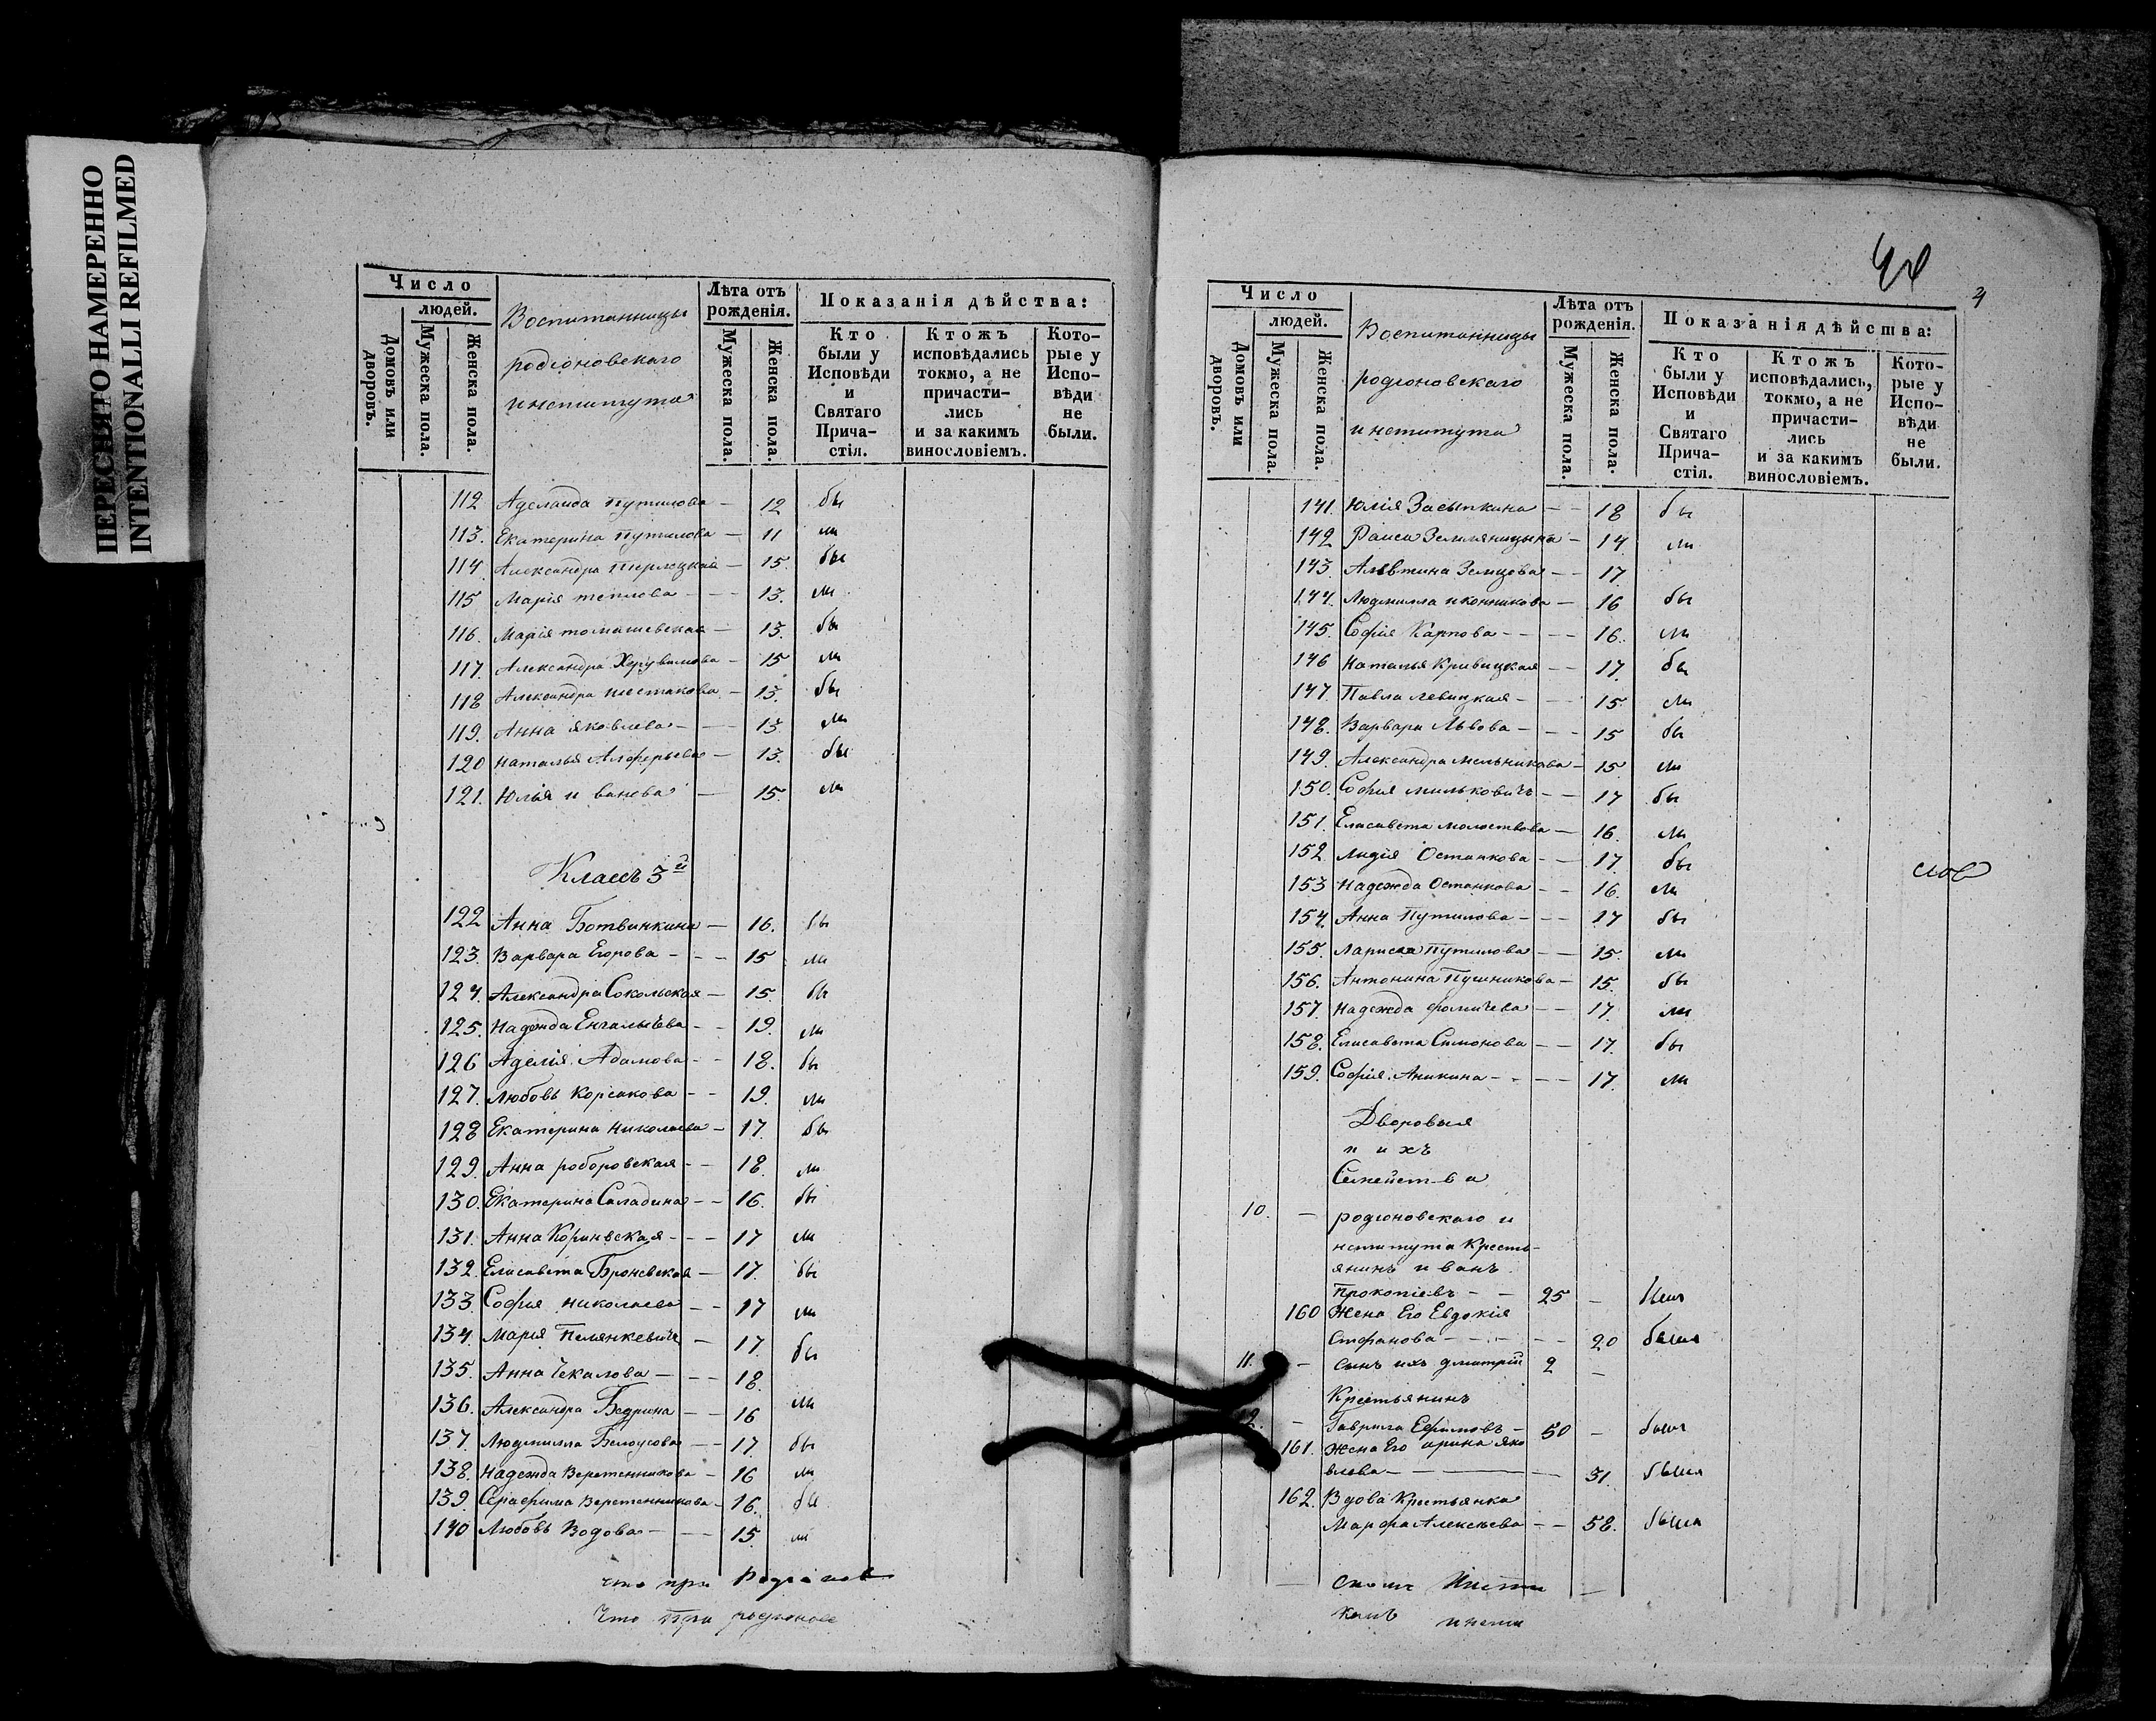 ПЕРЕСНЯТО НАМЕРЕННО
INTENTIONALLI REFILMED
Число
людей.
Домовъ или дворовъ.
Мужеска пола.
Женска пола.
Воспитанницы
родіоновскаго
института
Лѣта отъ
рожденія.
Мужеска пола.
Женска пола.
Показанія дѣйства:
Кто
были у
Исповѣди
и
Святаго
Прича-
стія.
Ктожъ
исповѣдались
токмо, а не
причасти-
лись
и за какимъ
винословіемъ.
Кото-
рые у
Испо-
вѣди
не
были.
112 Аделаида Путилова — 12 бы
113. Екатерина Путилова — 11 ли
114. Александра Терлецкая — 15. бы
115 Марія теплова — — 13. ли
116. Марія томашевская — 13. бы
117. Александра Херувимова — 15 ли
118 Александра шестакова — 13. бы
119. Анна яковлева — — 13 ли
120 Наталья Алферьева — 13. бы
121. Юлія и ванова — 15. ли
Классъ 3й
122 Анна Ботвинкина — 16. бы
123. Варвара Егорова — — 15 ли
124. Александра Сокольская — 15. бы
125. Надежда Енгалычева — — 19. ли
126 Аделія Адамова — — 18. бы
127. Любовь Корсакова — — 19. ли
128 Екатерина Николаева — 17. бы
129. Анна роборовская — — 18. ли
130. Екатерина Саладина — — 16. бы
131. Анна Коринвская — — 17 ли
132. Елисавета Броневская — 17. бы
133. Софія николаева — — 17 ли
134. Марія Пелянкевичъ — 17. бы
135. Анна Чекалова — — — 18.
136. Александра Бедрина — — 16 ли
137. Людмилла Белоусова — — 17. бы
138. Надежда Веретенникова — 16 ли
139. Серафима Веретенникова — 16. бы
140 Любовь Водова — — — 15. ли
что при
Что При родіонов
4
Число
людей.
Домовъ или дворовъ.
Мужеска пола.
Женска пола.
Воспитанницы
родіоновскаго
института
Лѣта отъ
рожденія.
Мужеска пола.
Женска пола.
Показанія дѣйства:
Кто
были у
Исповѣди
и
Святаго
Прича-
стія.
Ктожъ
исповѣдались,
токмо, а не
причасти-
лись
и за какимъ
винословіемъ.
Кото-
рые у
Испо-
вѣди
не
были.
141. Юлія Засыпкина — — 18 бы
142 Раиса Земляницына — 14 ли
143. Алевтина Земцова — — 17.
144. Людмилла иконникова — 16 бы
145. Софія Карпова — — — 16. ли
146 Наталья Кривицкая — — 17. бы
147. Павла левицкая — — 15. ли
148. Варвара Львова — — — 15 бы
149. Александра мельникова — 15. ли
150. Софія мильковичъ — — 17 бы
151. Елисавета молоствова — 16. ли
152. Лидія Останкова — — 17. бы
153 Надежда Останкова — — 16. ли
154. Анна Путилова — — — 17 бы
155. Лариса Путилова — — 15. ли
156. Антонина Пушникова — 15. бы
157. Надежда фомичева — — 17. ли
158. Елисавета Симонова — — 17. бы
159. Софія Аникина — — — — 17. ли
Дворовыя
и ихъ
Семейства
10. — родіоновскаго и
нститута Кресть-
янинъ и ванъ
Прокопіевъ — — 25 —
160 Жена Его Евдокія
Стефанова — — — — 20 была
11. — сынъ ихъ дмитрій 2 —
Крестьянинъ
2. — Гаврила Ефимовъ — 50 — былъ
161. Жена Его арина яко
влева — — — — 31. была
162. Вдова Крестьянка
Марфа Алексѣева — — 58. была